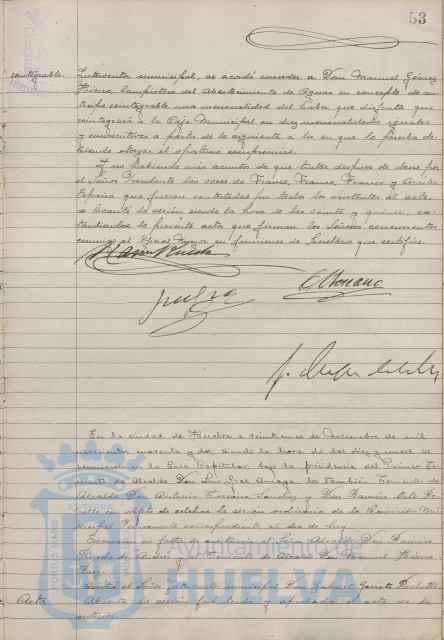 53
reintegrable.
Interventor municipal, se acordó conceder a Don Manuel Gómez
Hierro, Campistero del Abastecimiento de Aguas en concepto de an-
ticipo reintegrable una mensualidad del haber que disfruta que
reintegrará a la Caja Municipal en diez mensualidades iguales
y consecutivas a partir de la siguiente a la en que la perciba de-
biendo otorgar el oportuno compromiso.
Y no habiendo más asuntos de que tratar despues de darse por
el Señor Presidente las voces de Franco, Franco, Franco y Arriba
España que fueron contestadas por todos los asistentes al acto,
se levantó la sesión siendo la hora de las veinte y quince, ex-
tendiendose la presente acta que firman los Señores concurrentes
conmigo el Oficial Mayor en funciones de Secretario que certifico.
En la ciudad de Huelva a veinticinco de Noviembre de mil
novecientos cuarenta y dos, siendo la hora de las diez y nueve se
reunieron en la Casa Capitular, bajo la presidencia del Primer Te-
niente de Alcalde Don Luis los también Tenientes de
Alcalde Don Antonio Toscano Sanchez y Don Ramón
con objeto de celebrar la sesión ordinaria de la Comisión Mu-
nicipal Permanente correspondiente al dia de hoy.
Excusaron su falta de asistencia el Señor Alcalde Don
y el Teniente de Alcalde Don Manuel
Asistió el Señor Interventor municipal Don Gabriel
Acta
Abierta la sesión fué leida y aprobada el acta de la
anterior.
Ayuntamiento de
HUELVA